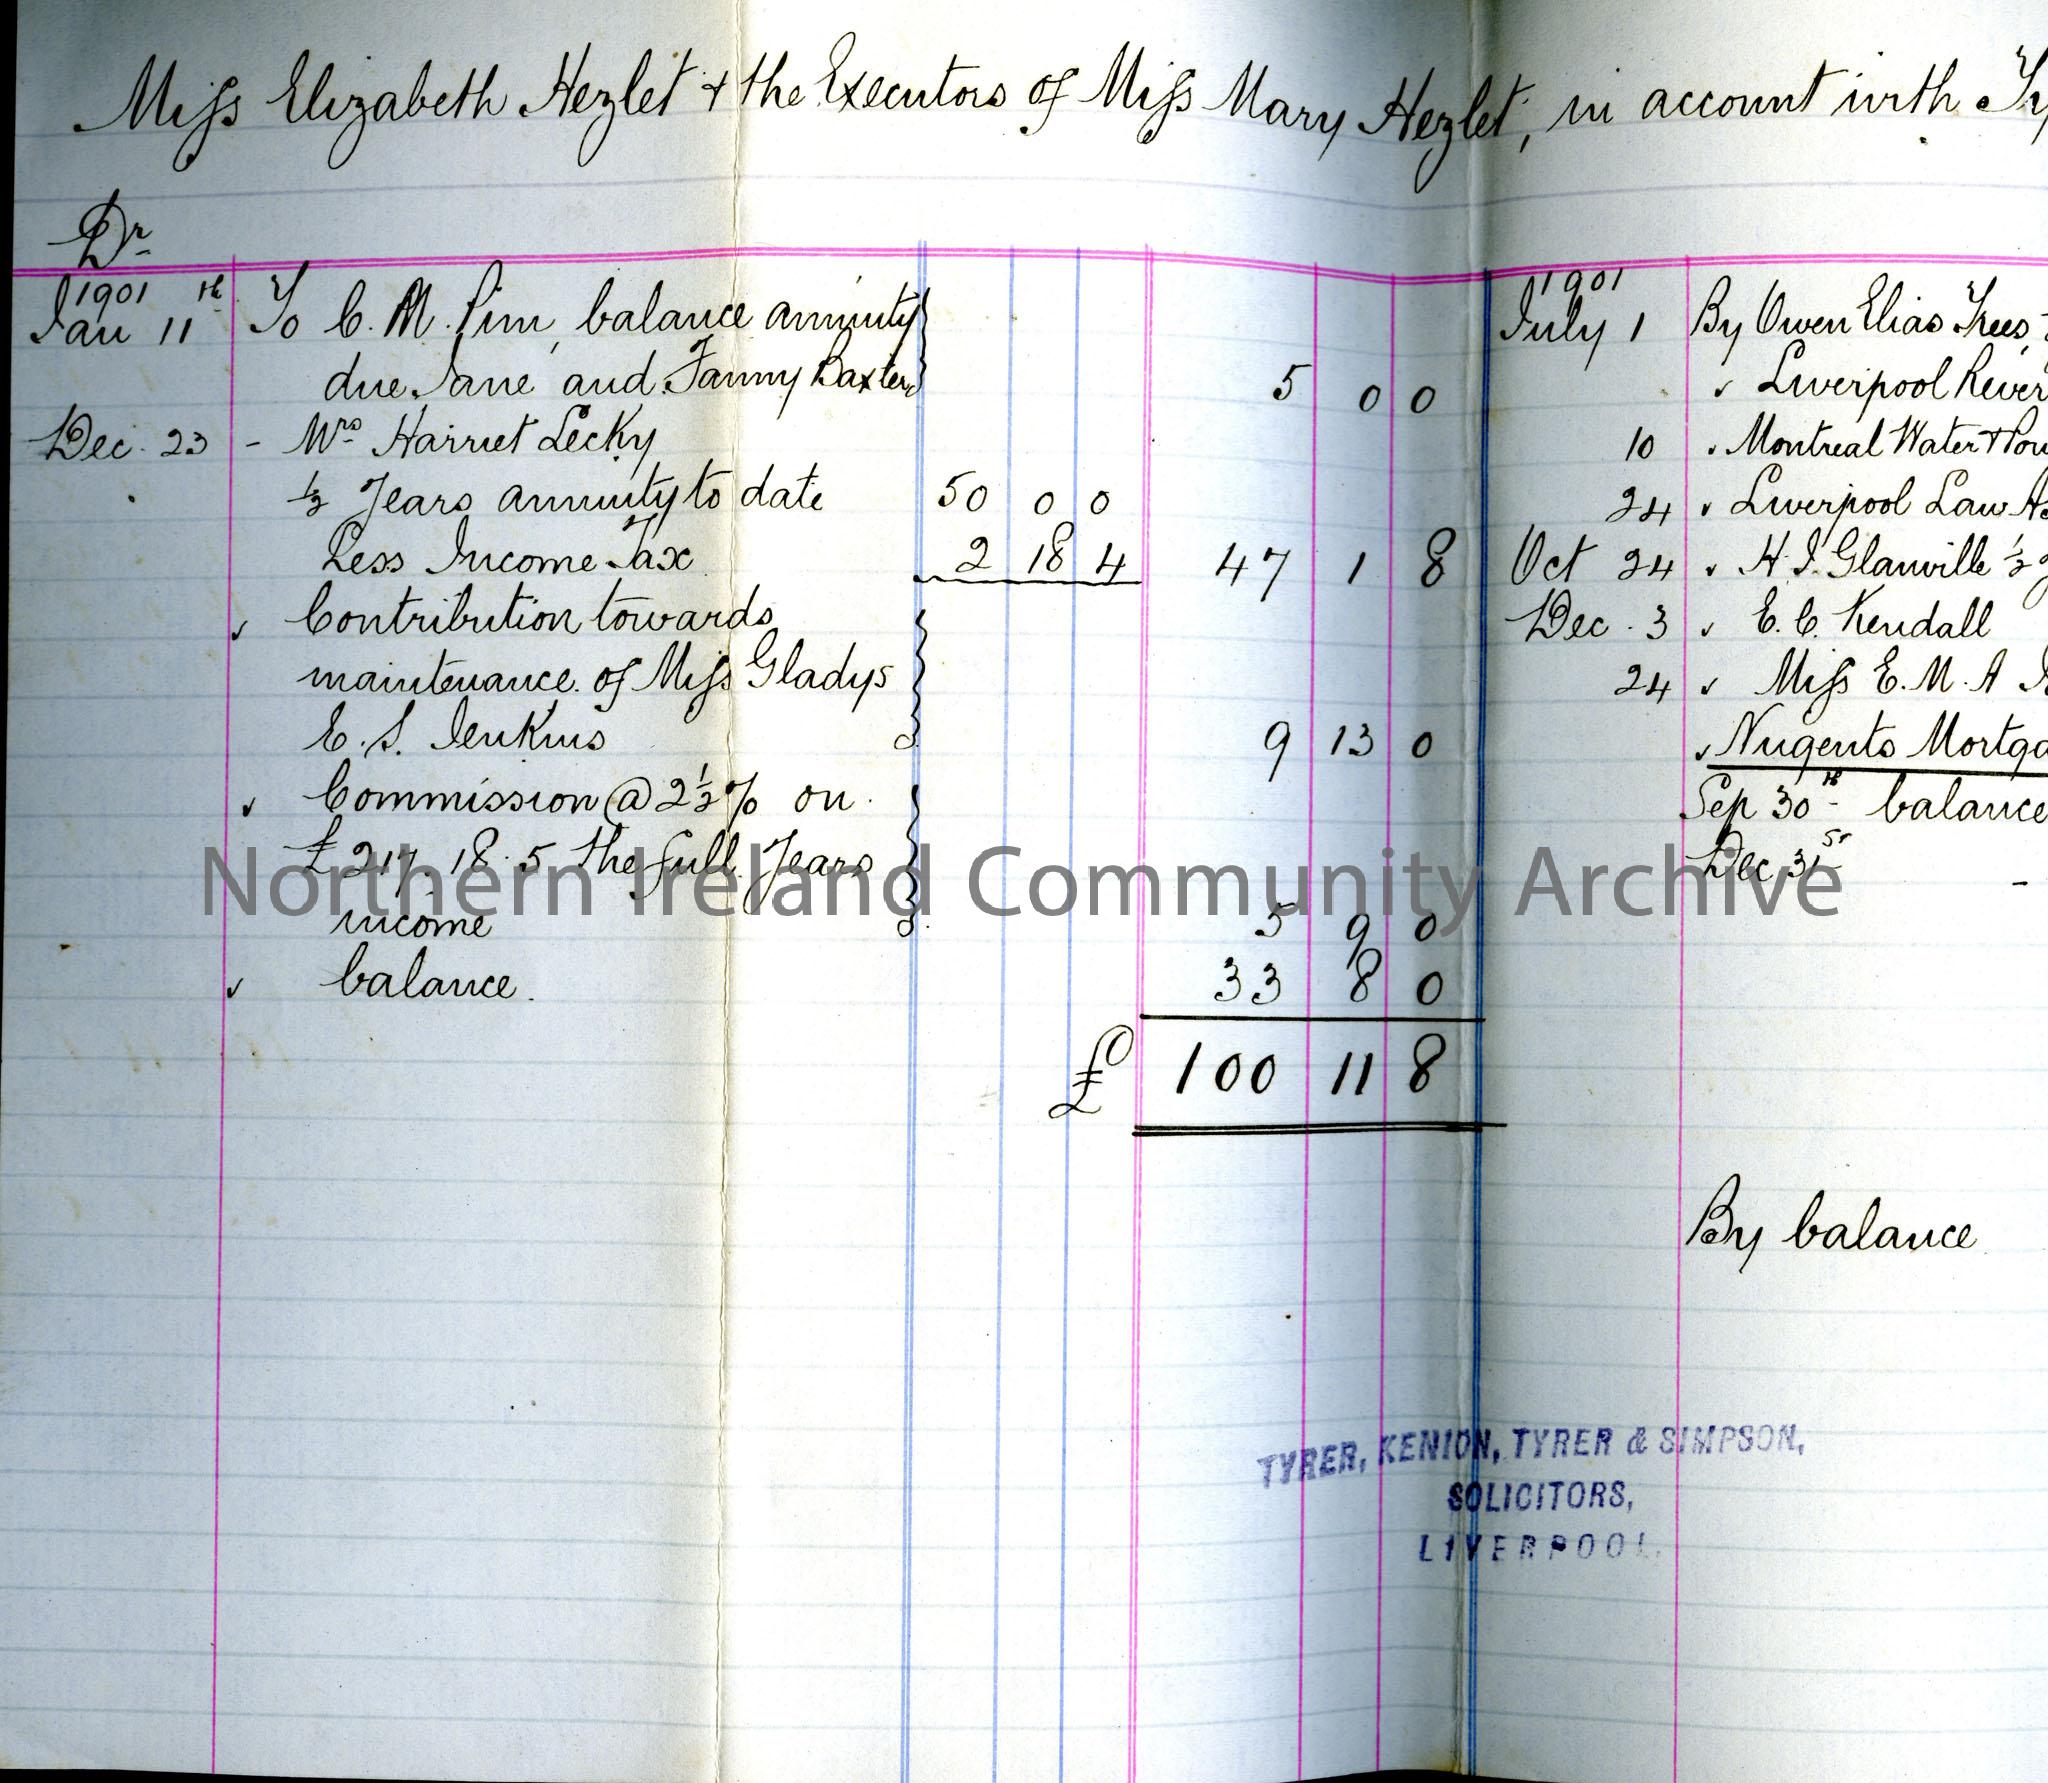 Miss Elizabeth Hezlet & the Executors of Miss Mary Hezlet, in account with Ty
Dr
1901
Jan 11th To C. M. Pim, balance annuity
due Jane and Fanny Baxter 5 0 0
Dec. 23 - Mrs Harriet Lecky
½ Years annuity to date 50 0 0
Less Income Tax 2 18 4 47 1 8
Contribution towards
maintenance of Miss Gladys
E. S. Jenkins 9 13 0
Commission @ 2½ % on
£217. 18. 5 the full Years
income 5 9 0
balance. 33 8 0
£ 100 11 8
1901
July 1 By Owen Elias Trees,
Liverpool Rever
10 Montreal Water & Pow
24 Liverpool Law As
Oct 24 H. J. Glanville ½ y
Dec. 3 E. C. Kendall
24 Miss E. M. A
Nugents Mortga
Sep 30th balance
Dec 31st -
By balance
TYRER, KENION, TYRER & SIMPSON,
SOLICITORS,
LIVERPOOL.
Northern Ireland Community Archive